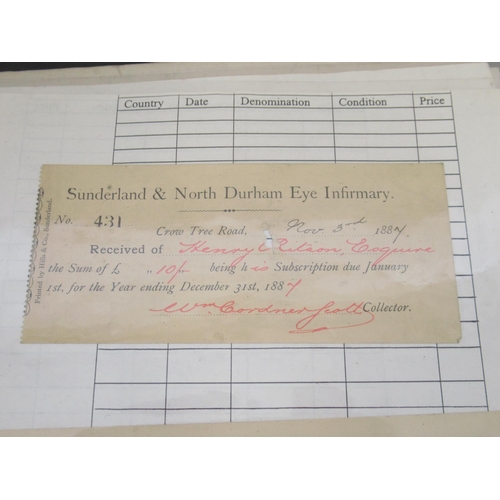 Country Date Denomination Condition Price
Sunderland & North Durham Eye Infirmary.
No. 431
Crow Tree Road, Nov. 3rd 1887.
Received of Henry Esquire
the Sum of £ " 10/- being his Subscription due January
1st, for the Year ending December 31st, 1887
Wm Gardner Scott Collector.
Printed by Hills & Co., Sunderland.